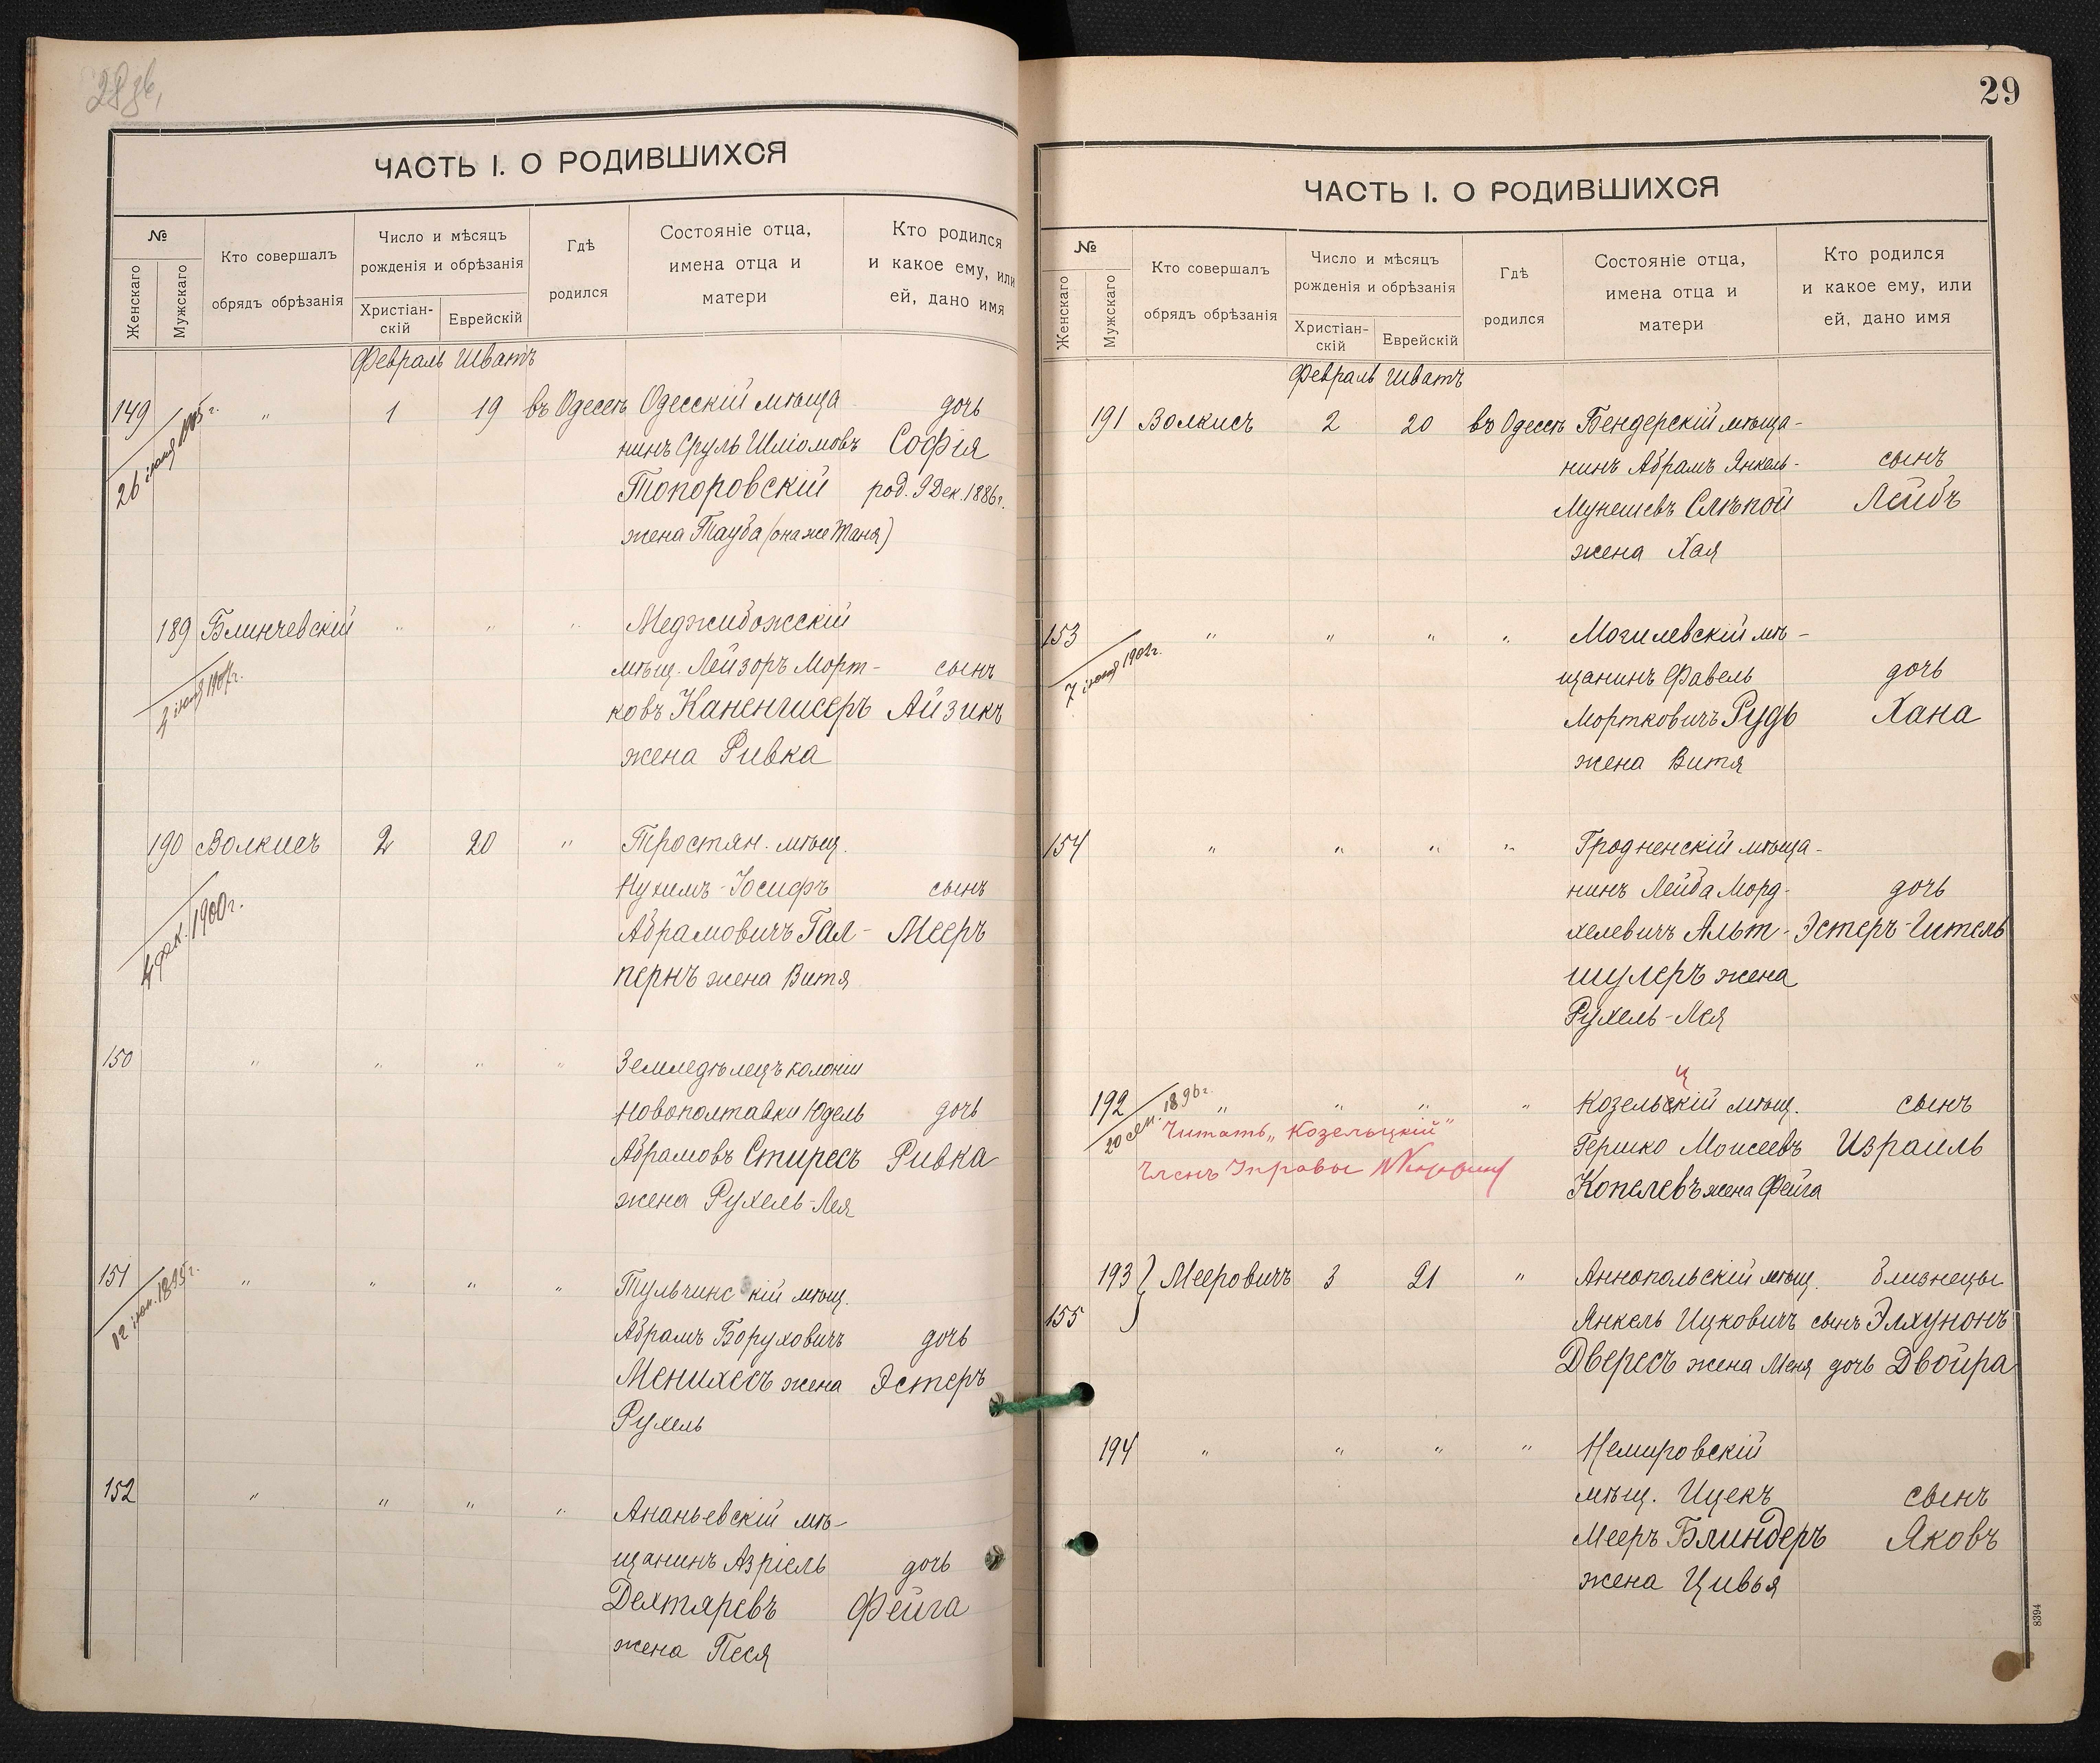 28 об.
ЧАСТЬ I. О РОДИВШИХСЯ
№
Женскаго
Мужскаго
Кто совершалъ
обрядъ обрѣзанія
Число и мѣсяцъ
рожденія и обрѣзанія
Христіан-
скій
Еврейскій
Гдѣ
родился
Состояніе отца,
имена отца и
матери
Кто родился
и какое ему, или
ей, дано имя
Февраль Шватъ
149 " 1 19 въ Одессѣ Одесскій мѣща дочь
26 1905 г.
нинъ Сруль Шліомовъ Софія
Топоровскій род. 9 Дек. 1886 г.
жена Тауба (она же Таня)
189 Блинчевскій " " " Меджибожскій
мѣщ. Лейзоръ Морт- сынъ
ковъ Каненгисеръ Айзикъ
жена Ривка
190 Волкисъ 2 20 " Тростян. мѣщ.
Нухимъ-Іосифъ сынъ
4 дек. 1900 г.
Абрамовичъ Гал- Мееръ
пернъ жена Витя
150 " " " " Земледѣлецъ колоніи
Новополтавки Юдель дочь
Абрамовъ Стиресъ Ривка
жена Рухель-Лея
151 " " " " Тульчинскій мѣщ.
12 1895 г.
Абрамъ Боруховичъ дочь
Менихесъ жена Эстеръ
Рухель
152 " " " " Ананьевскій мѣ-
щанинъ Азріель дочь
Дехтяревъ Фейга
жена Песя
29
ЧАСТЬ I. О РОДИВШИХСЯ
№
Женскаго
Мужскаго
Кто совершалъ
обрядъ обрѣзанія
Число и мѣсяцъ
рожденія и обрѣзанія
Христіан-
скій
Еврейскій
Гдѣ
родился
Состояніе отца,
имена отца и
матери
Кто родился
и какое ему, или
ей, дано имя
Февраль Шватъ
191 Волкисъ 2 20 въ Одессѣ Бендерскій мѣща-
нинъ Абрамъ Янкель- сынъ
Мунешевъ Слѣпой Лейбъ
жена Хая
153 " " " " Могилевскій мѣ-
7 1902 г.
щанинъ Фавель дочь
Мортковичъ Рудь Хана
жена Витя
154 " " " " Гродненскій мѣща-
нинъ Лейба Морд- дочь
хелевичъ Альт- Эстеръ-Гитель
шулеръ жена
Рухель-Лея
ц
192 " " " " Козельскій мѣщ. сынъ
20 1896 г.
Читать „Козельцкій"
Гершко Моисеевъ Израиль
Членъ Управы
Копелевъ жена Фейга
193 Мееровичъ 3 21 " Аннопольскій мѣщ. близнецы
155 Янкель Ицковичъ сынъ Элхунонъ
Двересъ жена Меня дочь Двойра
194 " " " " Немировскій
мѣщ. Ицекъ сынъ
Мееръ Блиндеръ Яковъ
жена Цивья
8394